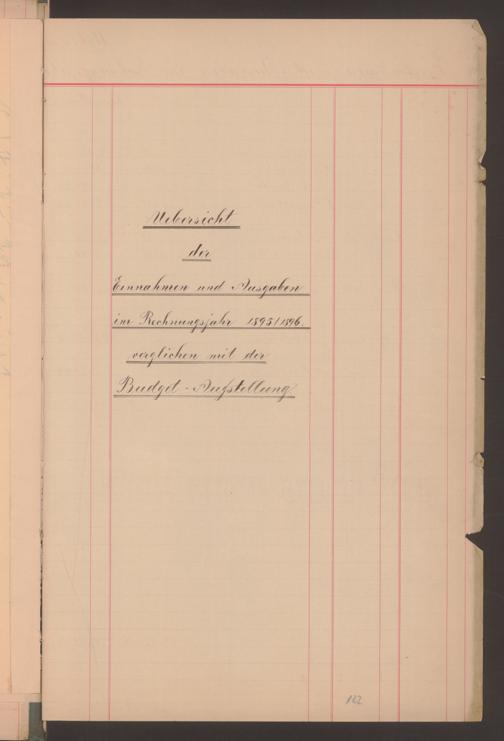 Uebersicht
der
Einnahmen und Ausgaben
im Rechnungsjahr 1895/1896.
verglichen mit der
Budget-Aufstellung.
122